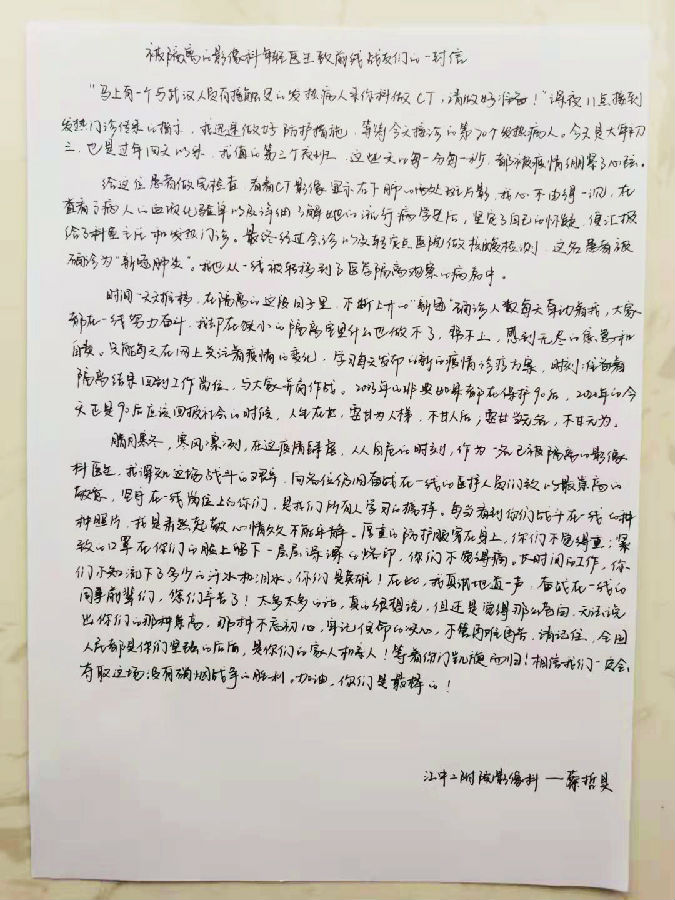 被隔离的影像科年轻医生致前线战友们的一封信
“马上有一个与武汉人员有接触史的发热病人来你科做CT，请做好准备！”深夜11点接到
发热门诊传来的指示，我迅速做好防护措施，等待今天接诊的第20个发热病人。今天是大年初
三，也是过年四天以来，我值的第三个夜班，这些天的每一分每一秒，都被疫情绷紧了心弦。
给这位患者做完检查，看着CT影像显示右下肺的几处斑片影，我心不由得一沉，在
查看了病人的血液化验单以及详细了解她的流行病学史后，坚定了自己的怀疑，便汇报
给了科室主任和发热门诊。最终经过会诊以及转定点医院做核酸检测，这名患者被
确诊为“新冠肺炎”。我也从一线被转移到了医学隔离观察的病房中。
时间一天天推移，在隔离的这段日子里，不断上升的“新冠”确诊人数每天牵动着我，大家
都在一线努力奋斗，我却在狭小的隔离室里什么也做不了，帮不上，感到无尽的焦急和
自责。只能每天在网上关注着疫情的变化，学习每天发布的新的疫情诊疗方案，时刻准备着
隔离结束回到工作岗位，与大家并肩作战。2003年的非典世界都在保护90后，2020年的今
天也是90后应该回报社会的时候，人生在世，要甘为人梯，不甘人后，要甘当无名，不甘无为。
腊月寒冬，寒风凛冽，在这疫情肆虐，人人自危的时刻，作为一名已被隔离的影像
科医生，我深知这场战斗的艰辛，向各位仍旧奋战在一线的医护人员们致以最崇高的
敬意，坚守在一线岗位上的你们，是我们所有人学习的榜样。每当看到你们战斗在一线的种
种照片，我是肃然起敬，心情久久不能平静。厚重的防护服穿在身上，你们不觉得重；紧
致的口罩在你们的脸上留下一层层深深的烙印，你们不觉得痛。长时间的工作，你
们不知流下了多少的汗水和泪水。你们是英雄！在此，我真诚地道一声，奋战在一线的
同事前辈们，你们辛苦了！太多太多的话，真的很想说，但还是觉得那么苍白，无法说
出你们的那种崇高，那种不忘初心，牢记使命的决心，不畏困难困苦，请记住，全国
人民都是你们坚强的后盾，是你们的家人和亲人！等着你们凯旋而归！相信我们一定会
夺取这场没有硝烟战争的胜利。加油，你们是最棒的！
江中二附院影像科——蔡哲良